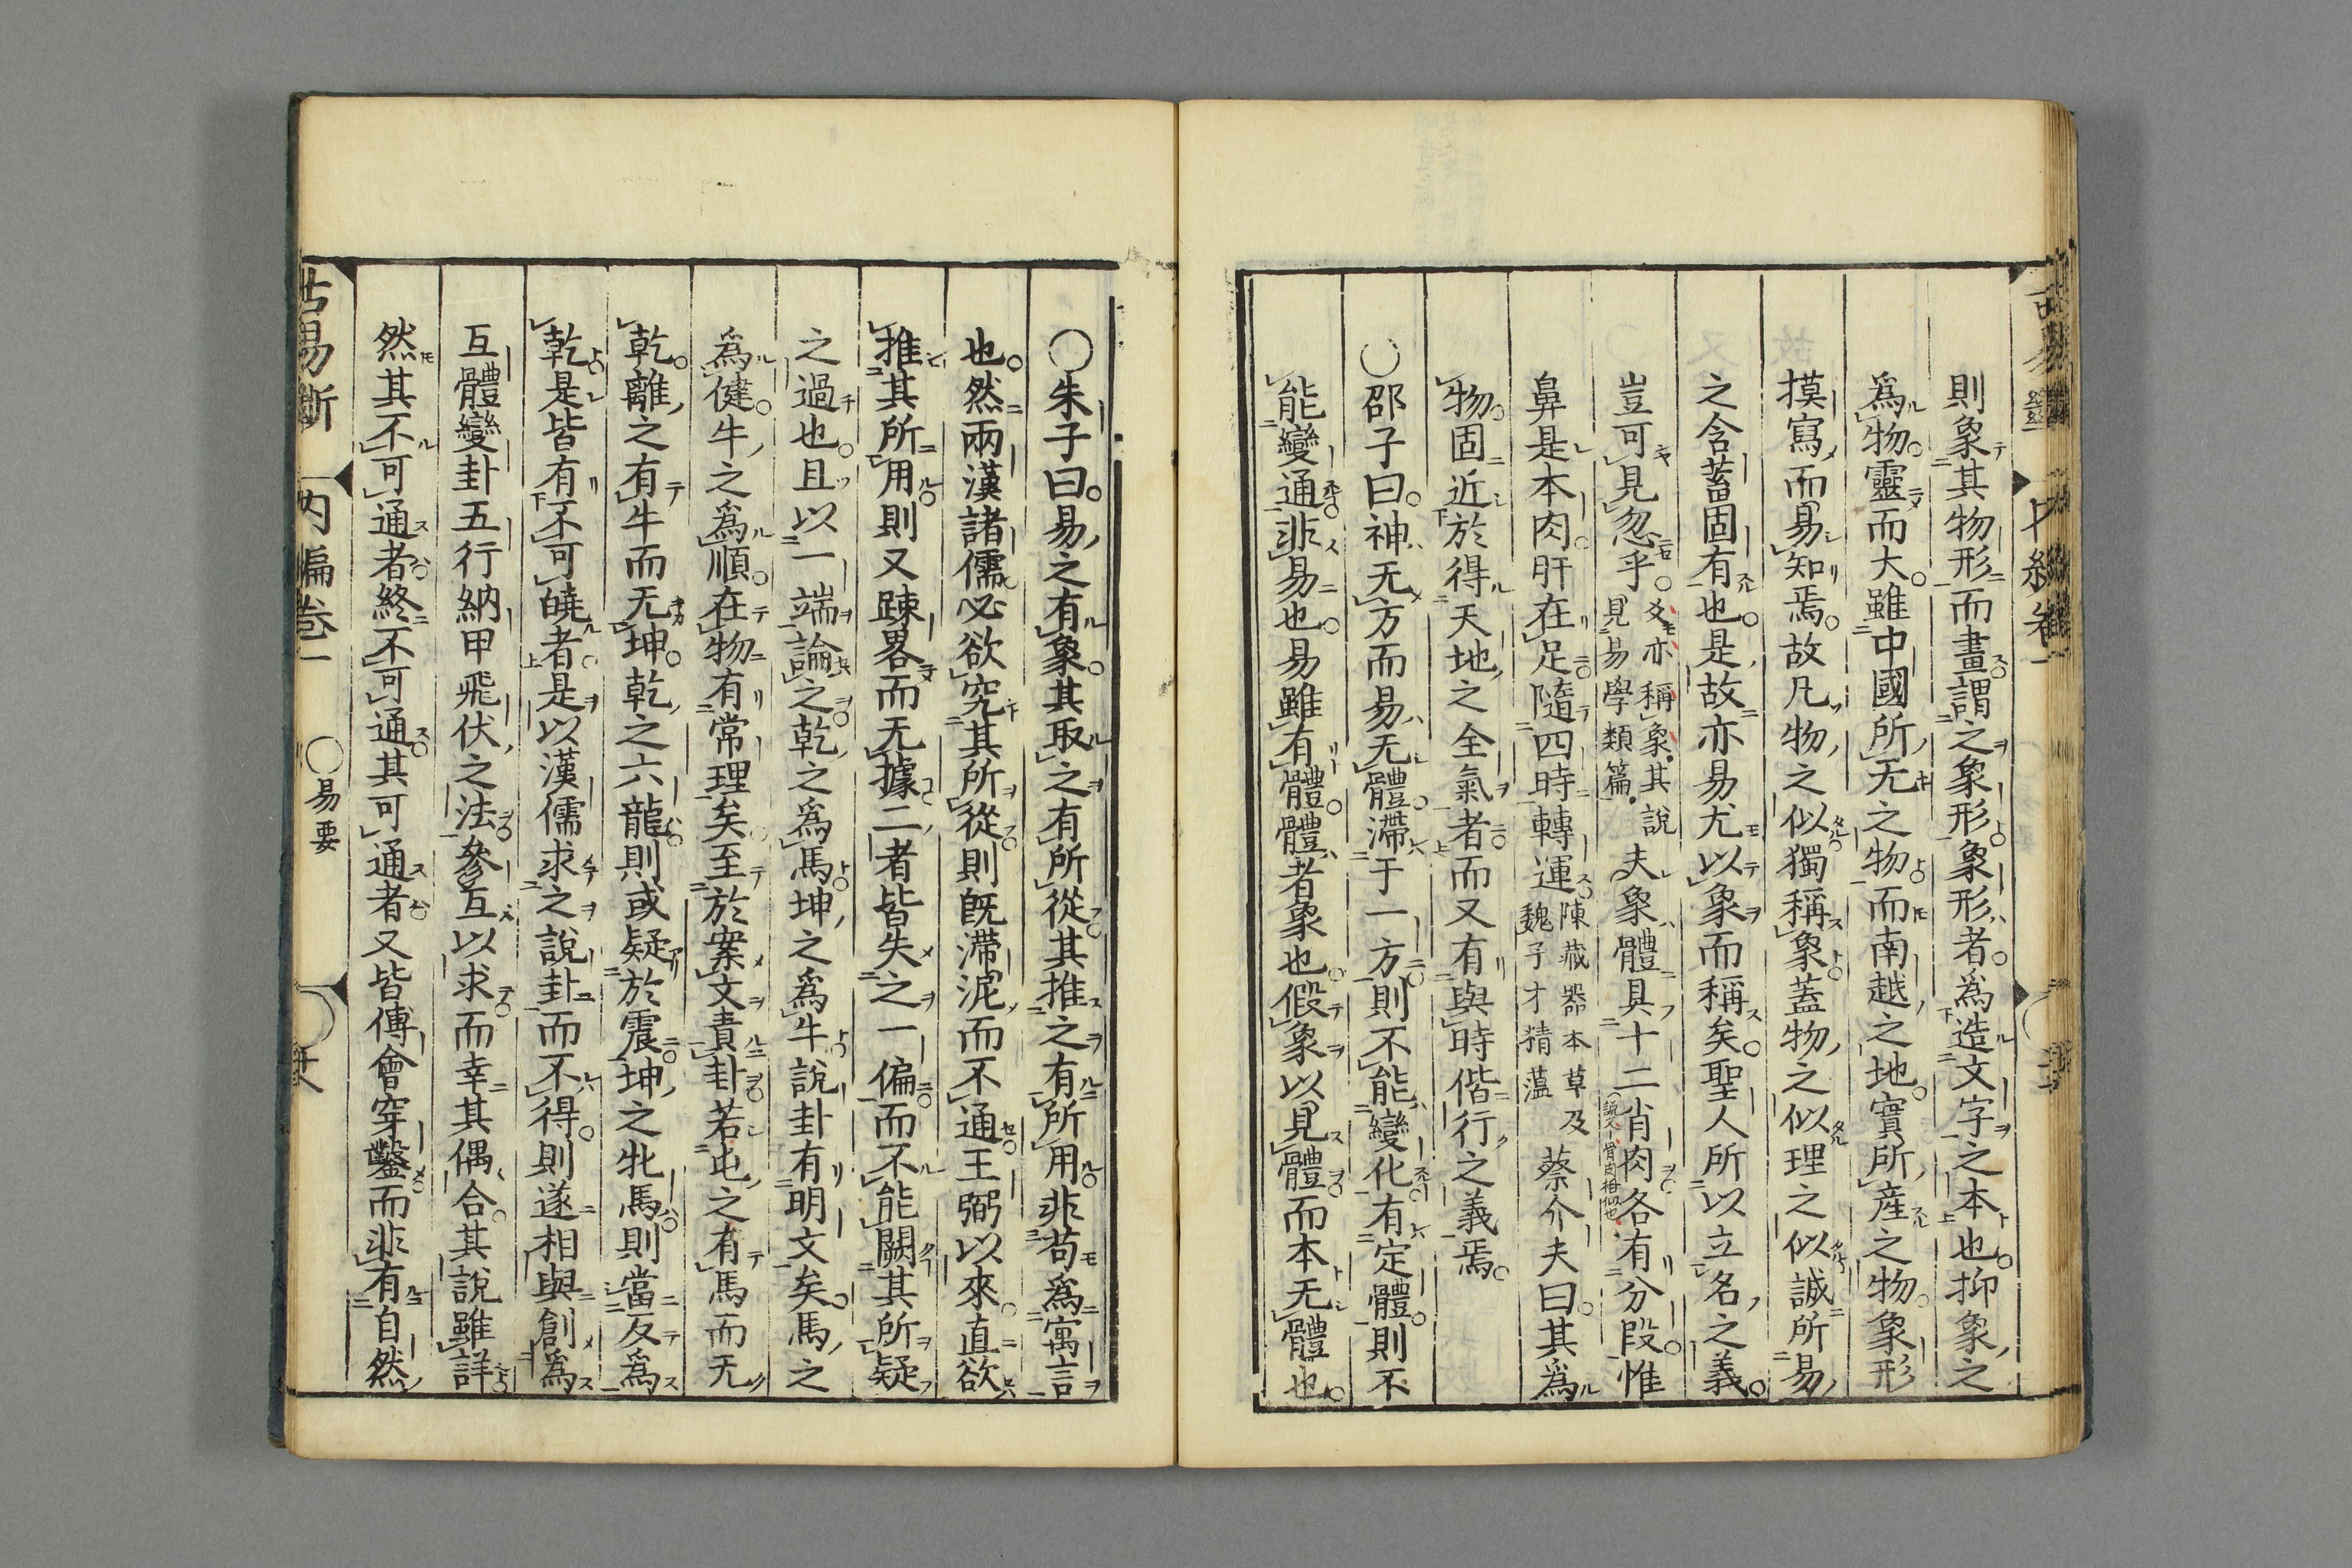 則象其物形而畫謂之象形象形者爲造文字之本也抑象之
爲物靈而大雖中國所无之物而南越之地實所產之物象形
摸寫而易知焉故凡物之似獨稱象蓋物之似理之似誠所易
之含蓄固有也是故亦易尤以象而稱矣聖人所以立名之義
豈可見忽乎爻亦稱象其說見易學類篇夫象體具十二肖肉各有分段惟
鼻是本肉肝在足隨四時轉運陳藏器本草及魏子才精薀蔡介夫曰其爲
物固近於得天地之全氣者而又有與時偕行之義焉
○邵子曰神无方而易无體滯于一方則不能變化有定體則不
能變通非易也易雖有體體者象也假象以見體而本无體也
○朱子曰易之有象其取之有所從其推之有所用非苟爲寓言
也然兩漢諸儒必欲究其所從則既滯泥而不通王弼以來直欲
推其所用則又踈畧而无據二者皆失之一偏而不能闕其所疑
之過也且以一端論之乾之爲馬坤之爲牛說卦有明文矣馬之
爲健牛之爲順在物有常理矣至於案文責卦若屯之有馬而无
乾離之有牛而无坤乾之六龍則或疑於震坤之牝馬則當反爲
乾是皆有不可曉者是以漢儒求之說卦而不得則遂相與創爲
互體變卦五行納甲飛伏之法參互以求而幸其偶合其說雖詳
然其不可通者終不可通其可通者又皆傅會穿鑿而非有自然
古易斷 內編卷一 ○易要